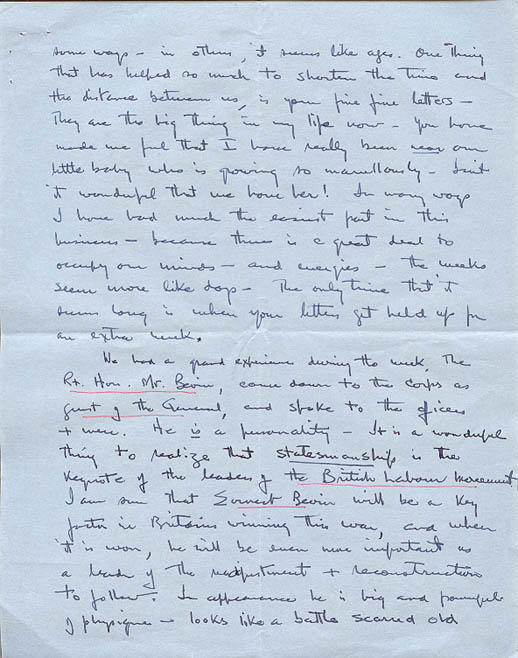 some ways – in others, it seems like ages. One thing
that has helped so much to shorten the time and
the distance between us, is your fine fine letters –
They are the big thing in my life now – You have
made me feel that I have really been near our
little baby who is growing so marvellously – Isn't
it wonderful that we have her! In many ways
I have had much the easiest part in this
business – because there is a great deal to
occupy our minds – and energies – the weeks
seem more like days – The only time that it
seems long is when your letters get held up for
an extra week.
We had a grand experience during the week, The
Rt. Hon. Mr. Bevin, came down to the Corps as
guest of the General, and spoke to the officers
+ men. He is a personality – It is a wonderful
thing to realize that statesmanship is the
keynote of the leaders of the British Labour movement
I am sure that Ernest Bevin will be a key
factor in Britains winning this war, and when
it is won, he will be even more important as
a leader of the readjustment + reconstruction
to follow. In appearance he is big and powerful
of physique – looks like a battle scarred old